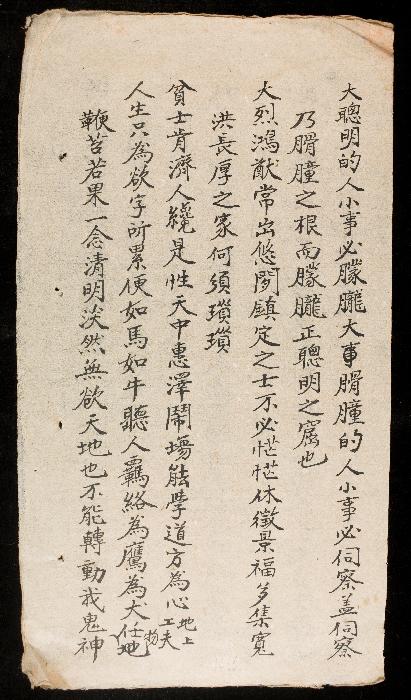 大聰明的人小事必朦朧大事膧的人小事必伺察盖伺察
乃膧之根而朦朧正聰明之窟也
大烈鴻猷常出悠閒鎮定之士不必忙忙休徵景福多集寬
洪長厚之家何須瑣瑣
貧士肯濟人纔是性天中惠澤鬧場能學道方為心地上工夫
人生只為欲字所累便如馬如牛聽人羈絡為鷹為犬任物
鞭笞若果一念清明淡然無欲天地也不能轉動我鬼神